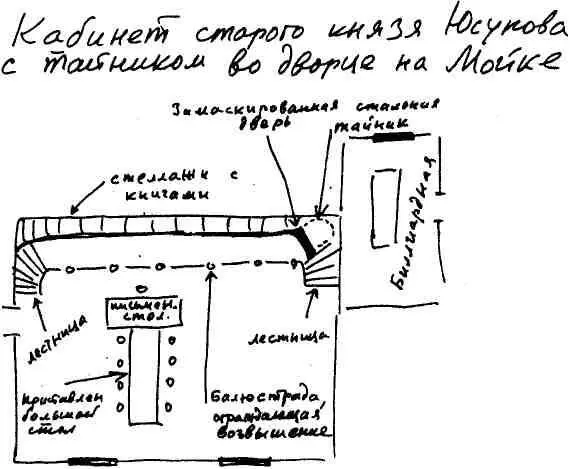 Кабинет старого князя Юсупова
с тайником во дворце на Мойке
Замаскированная стальная
дверь
тайник
стеллажи с
книгами
Биллиардная
письмен.
стол.
лестница
лестница
приставлен
большой
стол
Балюстрада,
ограждающая
возвышение